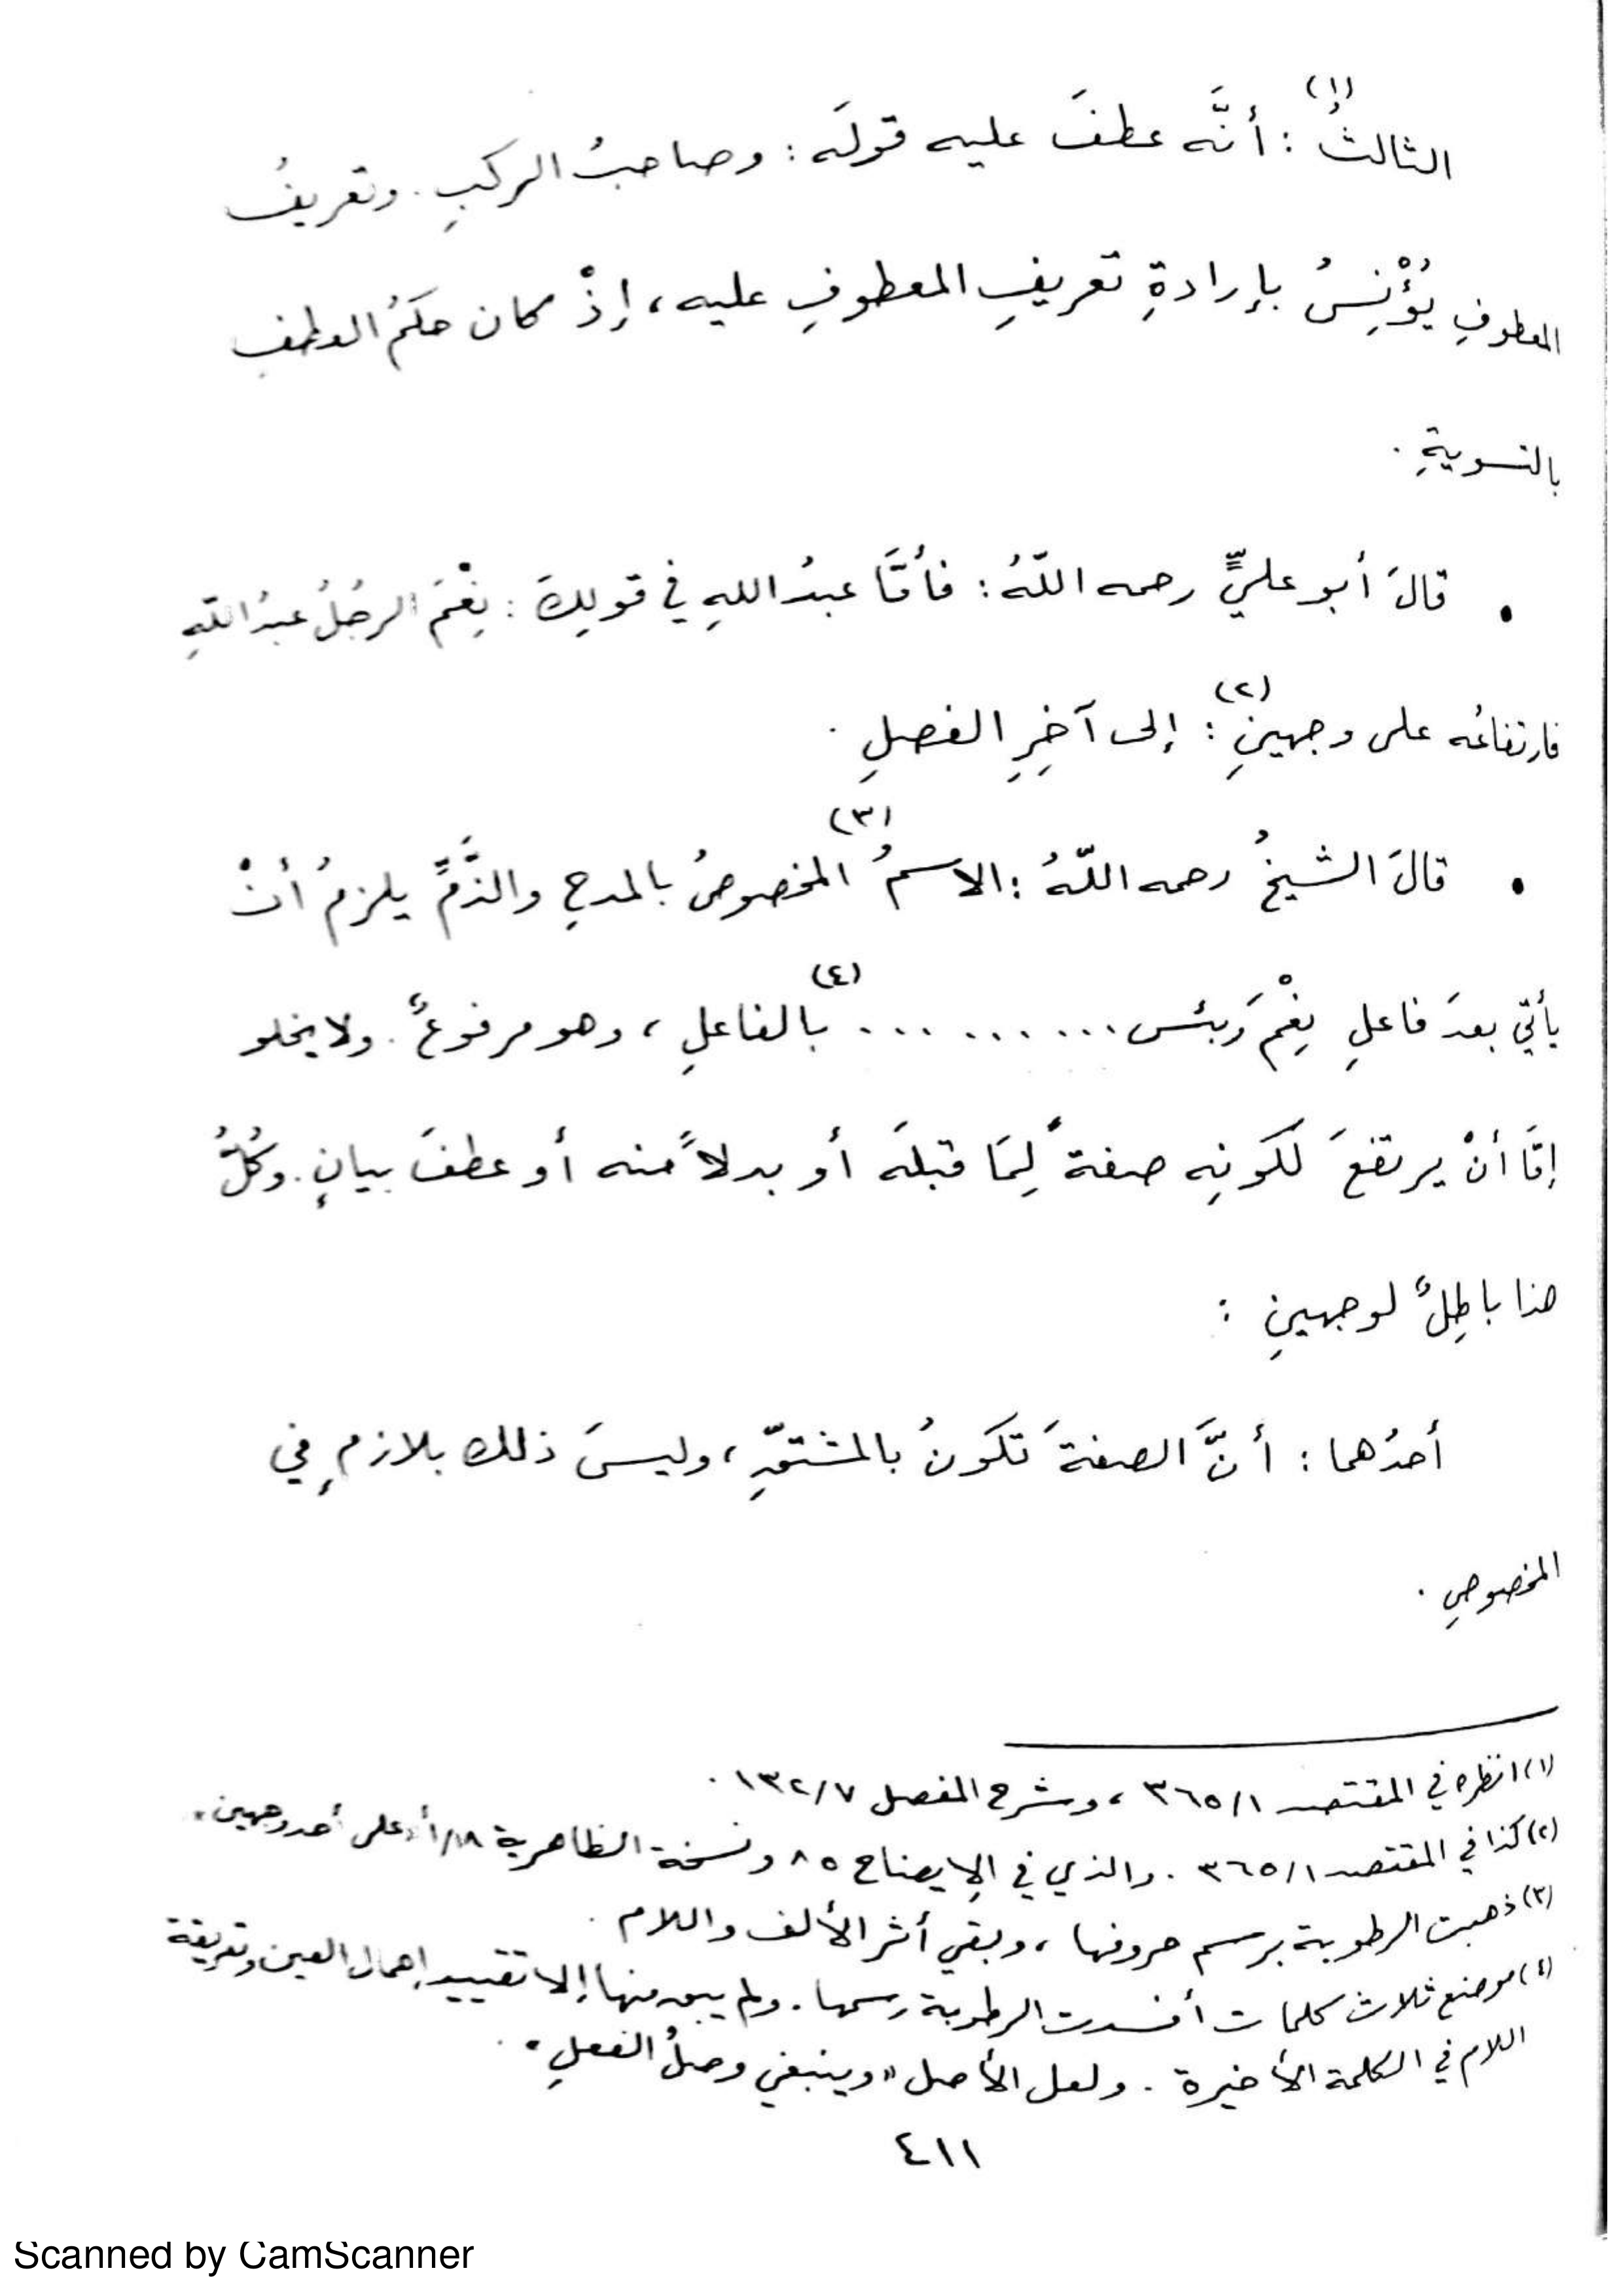 الثالثُ(١) : أنَّه عطفَ عليه قولَه : وصاحبُ الركبِ . وتعريفُ
المعطوفِ يُؤْنِسُ بإرادةِ تعريفِ المعطوفِ عليه ، إذْ كان حكمُ العطفِ
بالتسويةِ .
• قالَ أبو عليٍّ رحمه اللّهُ : فأمَّا عبدُ اللهِ في قولِكَ : نِعْمَ الرجُلُ عبدُ اللّهِ
فارتفاعُه على وجهينِ(٢) : إلى آخِرِ الفصلِ .
• قالَ الشيخُ رحمه اللّهُ : الاسمُ(٣) المخصوصُ بالمدحِ والذَّمِّ يلزمُ أنْ
يأتيَ بعدَ فاعلِ نِعْمَ وَبئس .......... (٤) بالفاعلِ ، وهو مرفوعٌ . ولا يخلو
إمَّا أنْ يرتفعَ لكونِه صفةً لِمَا قبلَه أو بدلاً منه أو عطفَ بيانٍ . وكُلُّ
هذا باطِلٌ لوجهينِ :
أحدُهما : أنَّ الصفةَ تكونُ بالمشتقِّ ، وليسَ ذلك بلازمٍ في
المخصوصِ .
(١) انظره في المقتصد ٣٦٥/١ ، وشرح المفصل ١٣٢/٧ .
(٢) كذا في المقتصد ٣٦٥/١ . والذي في الإيضاح ٨٥ ونسخة الظاهرية ١/١٨أ «على أحد وجهين»
(٣) ذهبت الرطوبة برسم حروفها ، وبقي أثر الألف واللام .
(٤) موضع ثلاث كلمات أفسدت الرطوبة رسمها . ولم يبق منها إلا تقييد إهمال العين وتعريقة
اللام في الكلمة الأخيرة . ولعل الأصل «وينبغي وصلُ الفعلِ» .
٤١١
Scanned by CamScanner